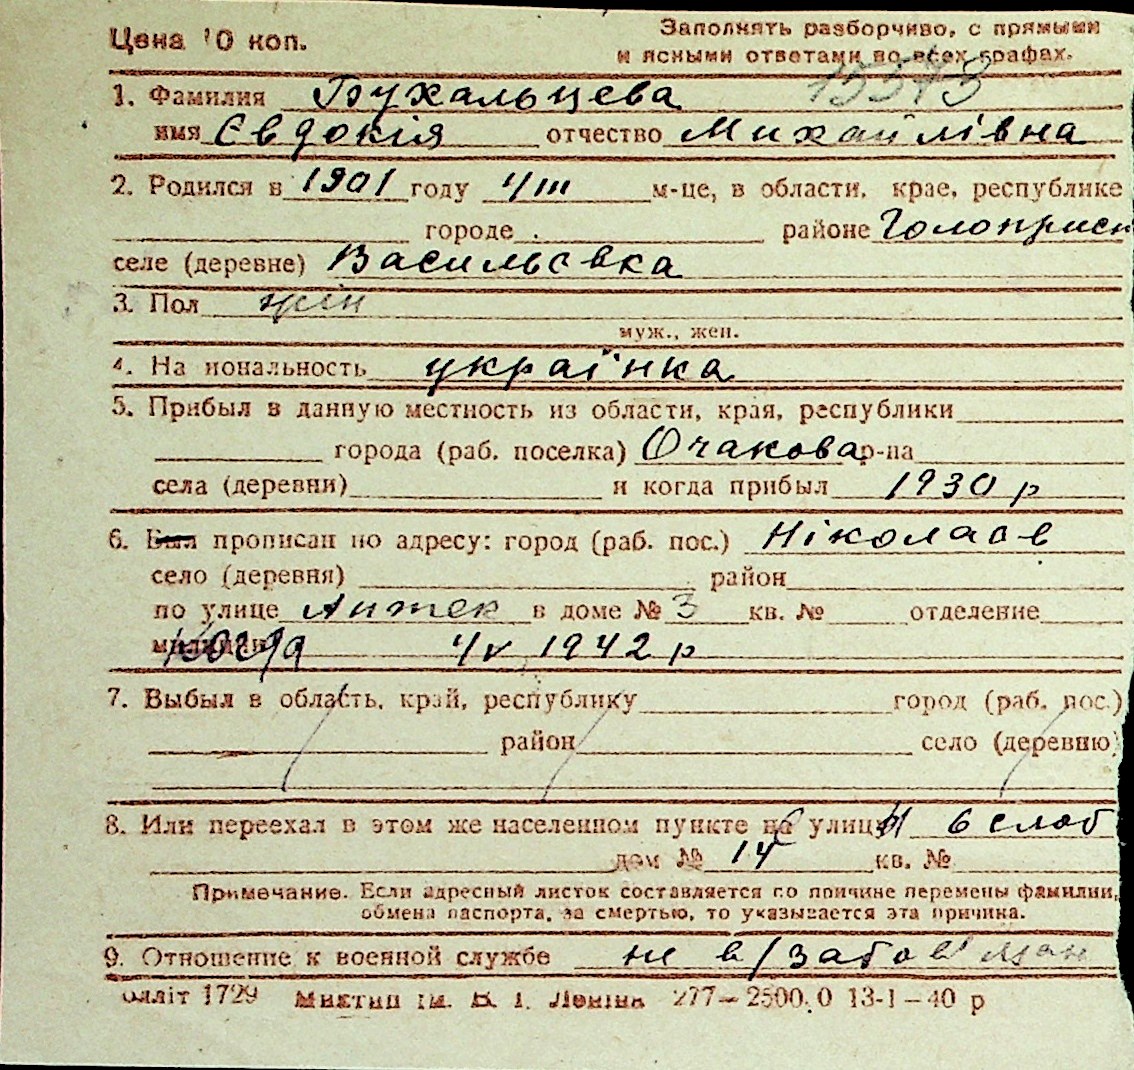 Цена 10 коп.
Заполнять разборчиво, с прямыми
и ясными ответами во всех графах.
13573
1. Фамилия Бухальцева
имя Євдокія отчество Михайлівна
2. Родился в 1901 году 4/III м-це, в области, крае, республике
городе районе Голоприсн
селе (деревне) Васильєвка
3. Пол жін
муж., жен.
4. Национальность українка
5. Прибыл в данную местность из области, края, республики
города (раб. поселка) Очакова р-на
села (деревни) и когда прибыл 1930 р
6. Был прописан по адресу: город (раб. пос.) Ніколаєв
село (деревня) район
по улице Аптек в доме № 3 кв. № отделение
милиции когда 4/V 1942 р
7. Выбыл в область, край, республику город (раб. пос.)
район село (деревню)
8. Или переехал в этом же населенном пункте по улице 6 слоб
дом № 14 кв. №
Примечание. Если адресный листок составляется по причине перемены фамилии,
обмена паспорта, за смертью, то указывается эта причина.
9. Отношение к военной службе не в/
1729 ім. В. І. Леніна 277—2500.0 13-I—40 р